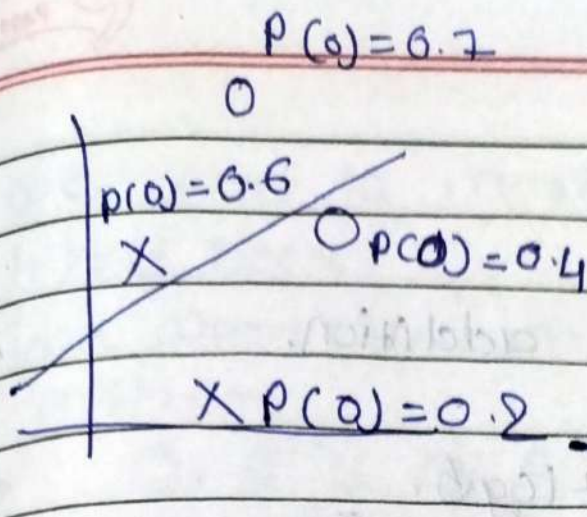 P(0) = 0.7
O
p(0) = 0.6
X
O P(0) = 0.4
X P(0) = 0.2